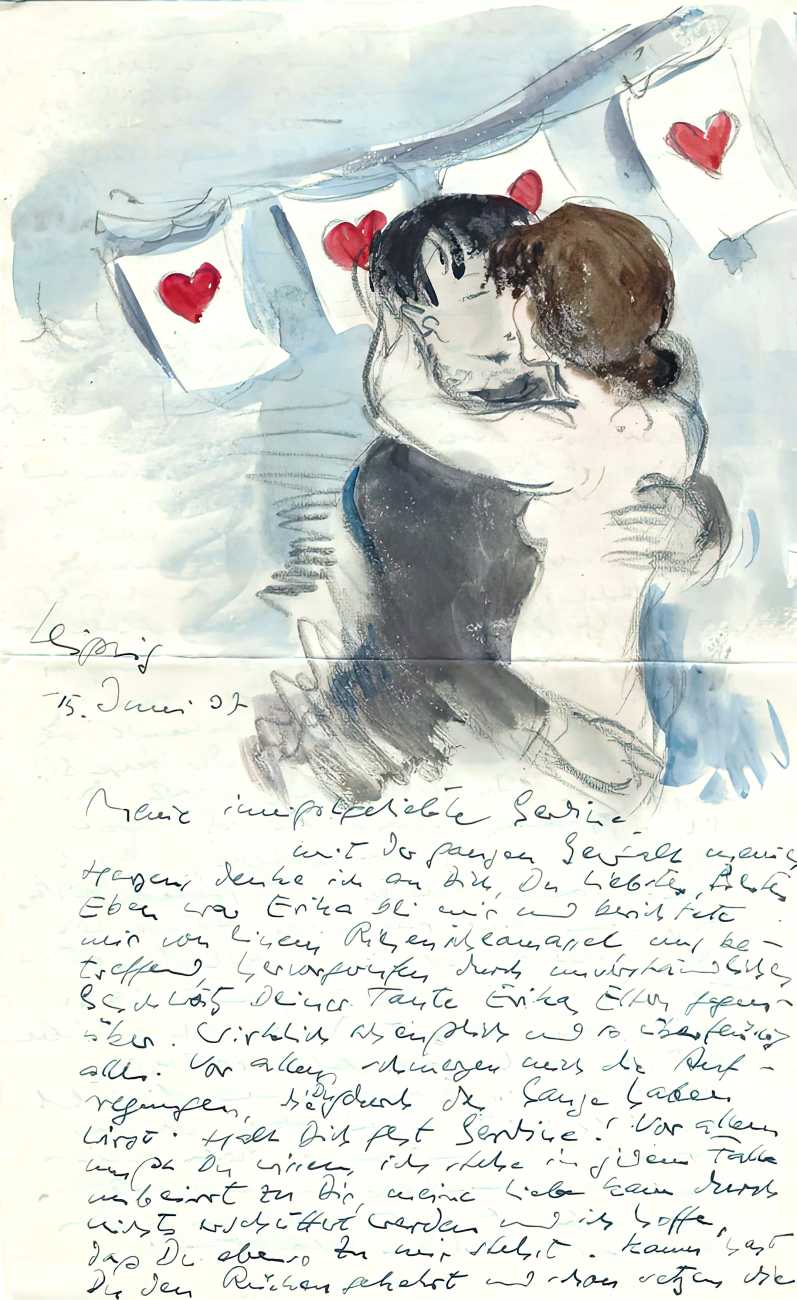 Leipzig
15. Juni 97
Meine innigstgeliebte Gerdine
mit der ganzen Gewalt meines
Herzens denke ich an Dich, Du Liebste,
Eben war Erika bei mir und berichtete
mir von einem Riesenschlamassel uns be-
treffend, hervorgerufen durch unverständliches
Geschwätz Deiner Tante Erikas Eltern gegen-
über. Wirklich und so überflüssig
alles. Vor allem schmerzen mich die Auf-
regungen, die Du durch das Ganze haben
wirst. Halt Dich fest Gerdine! Vor allem
mußt Du wissen, ich stehe in jedem Falle
unbeirrt zu Dir, meine Liebe kann durch
nichts erschüttert werden und ich hoffe,
daß Du ebenso zu mir stehst. Kaum hast
Du den Rücken gekehrt und schon setzen die